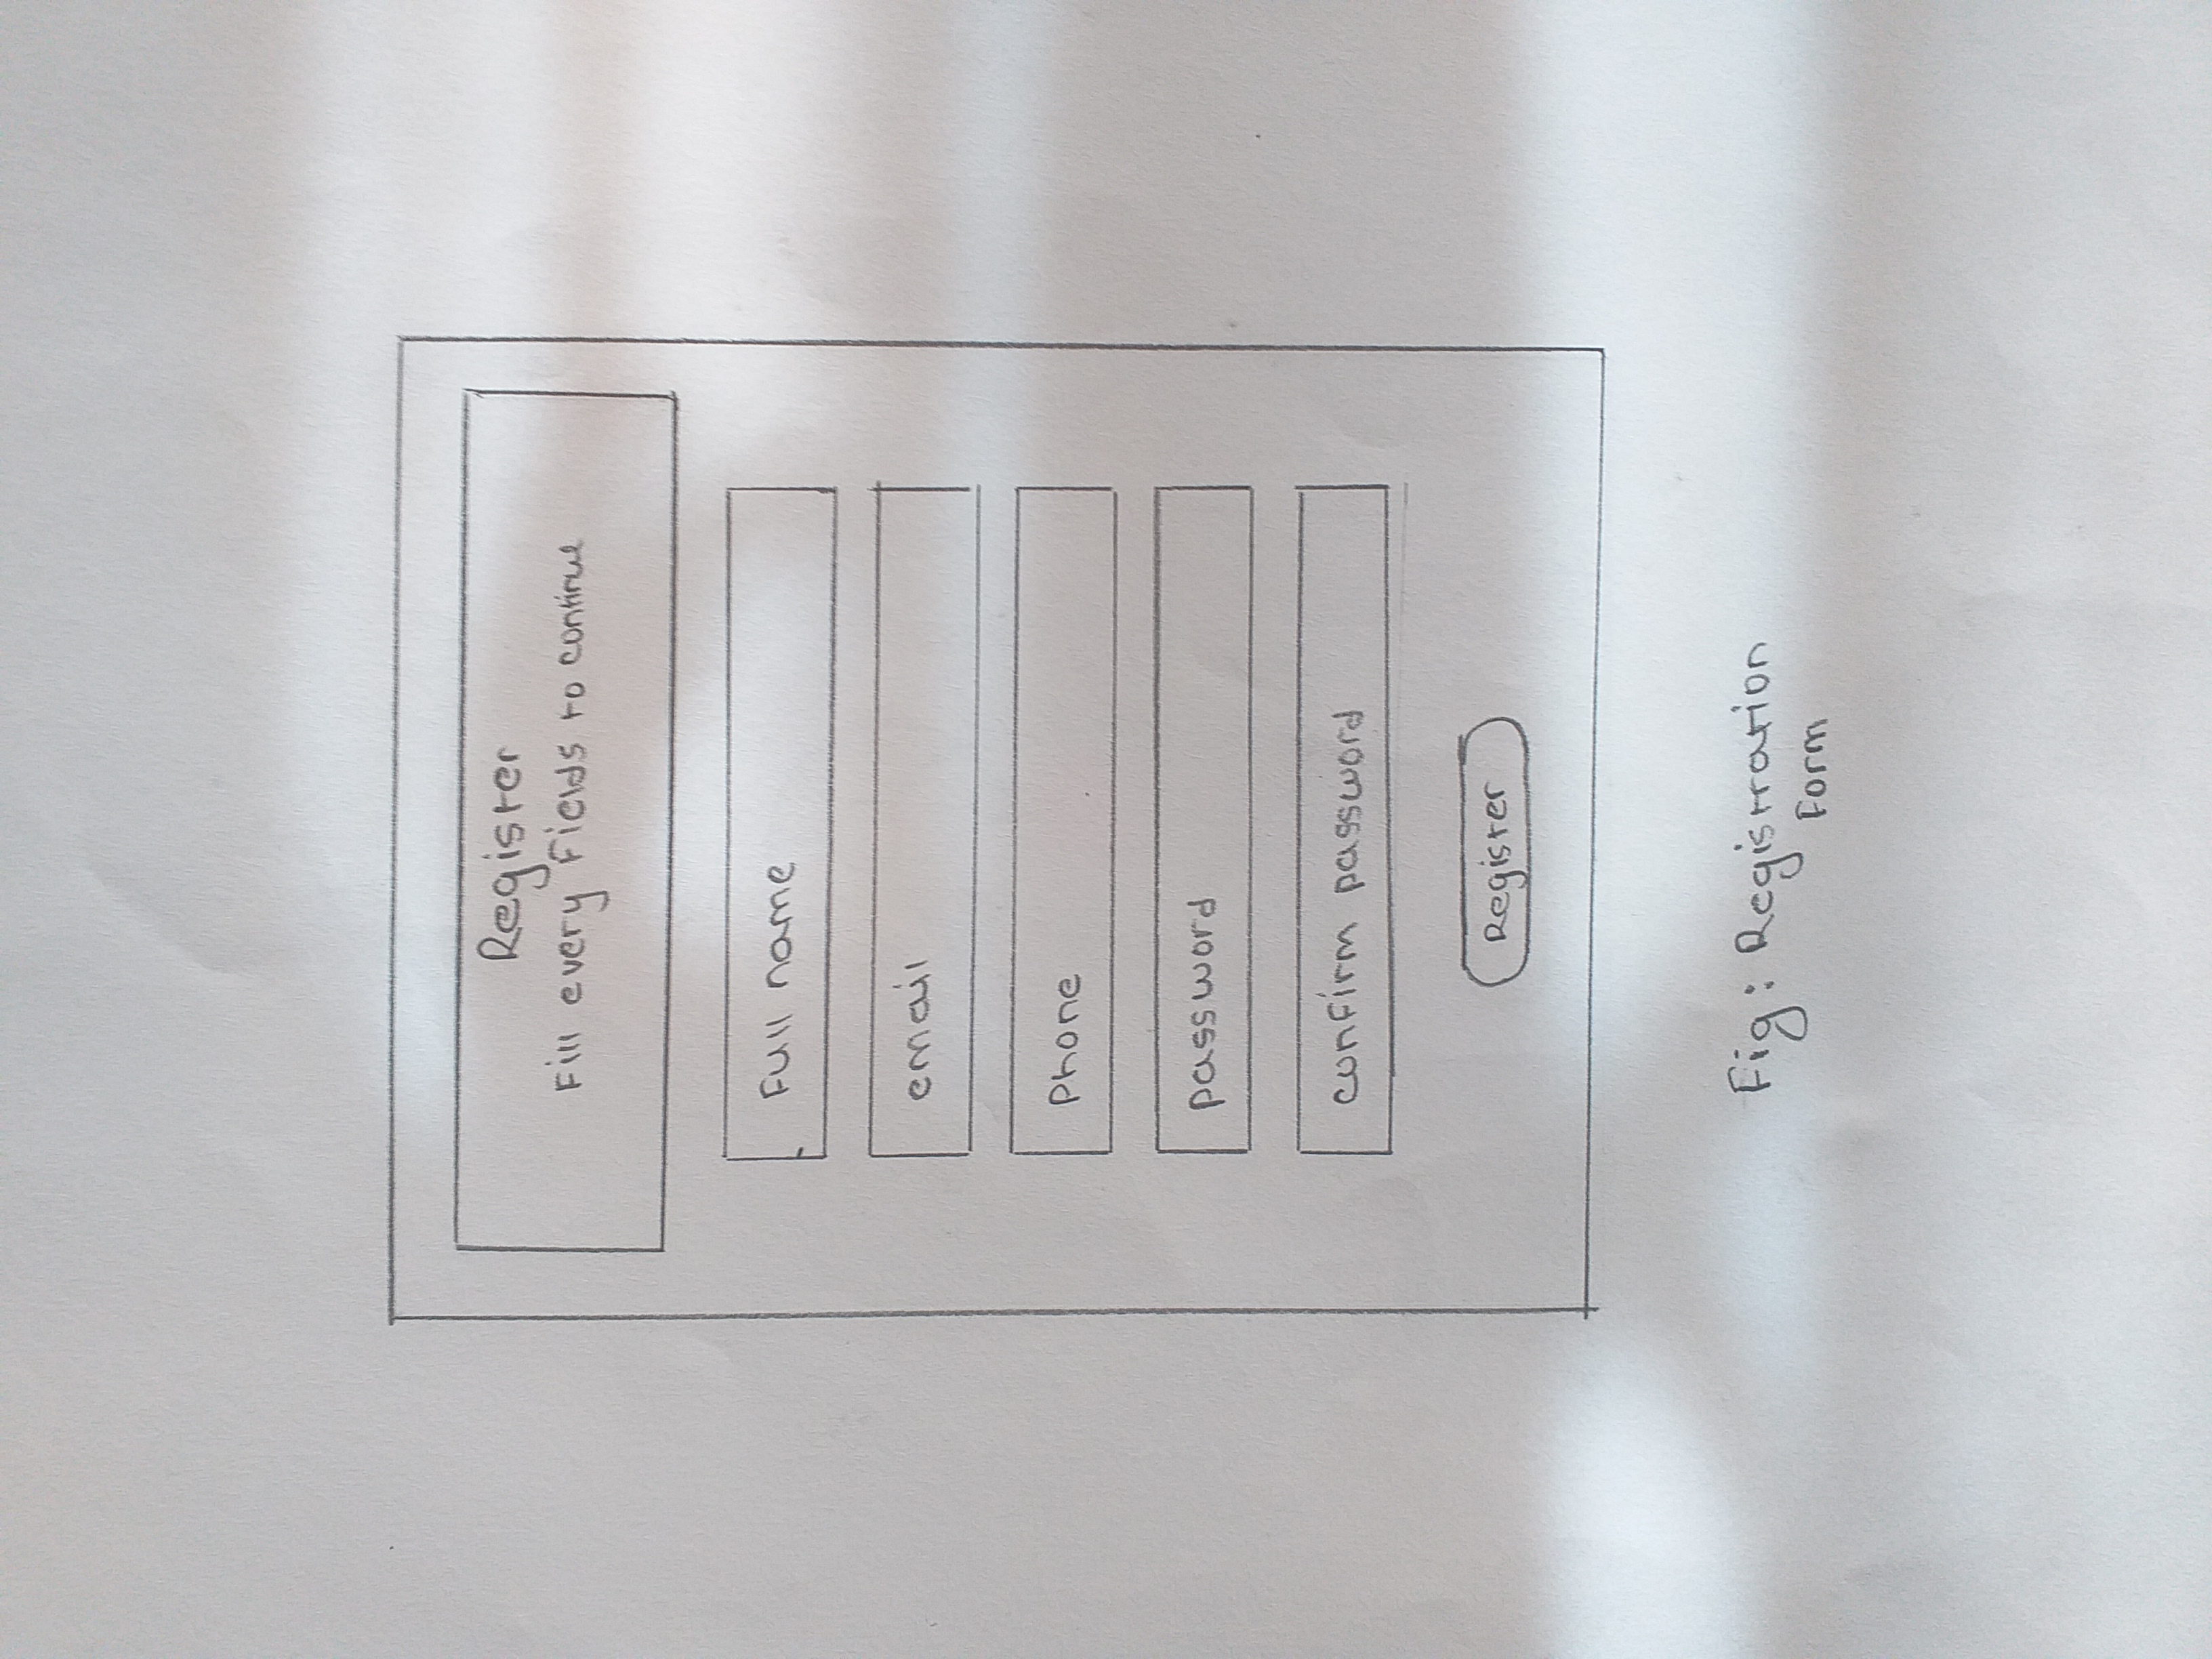 Register
Fill every Fields to continue
Full name
email
Phone
password
confirm password
Register
Fig: Registration
Form